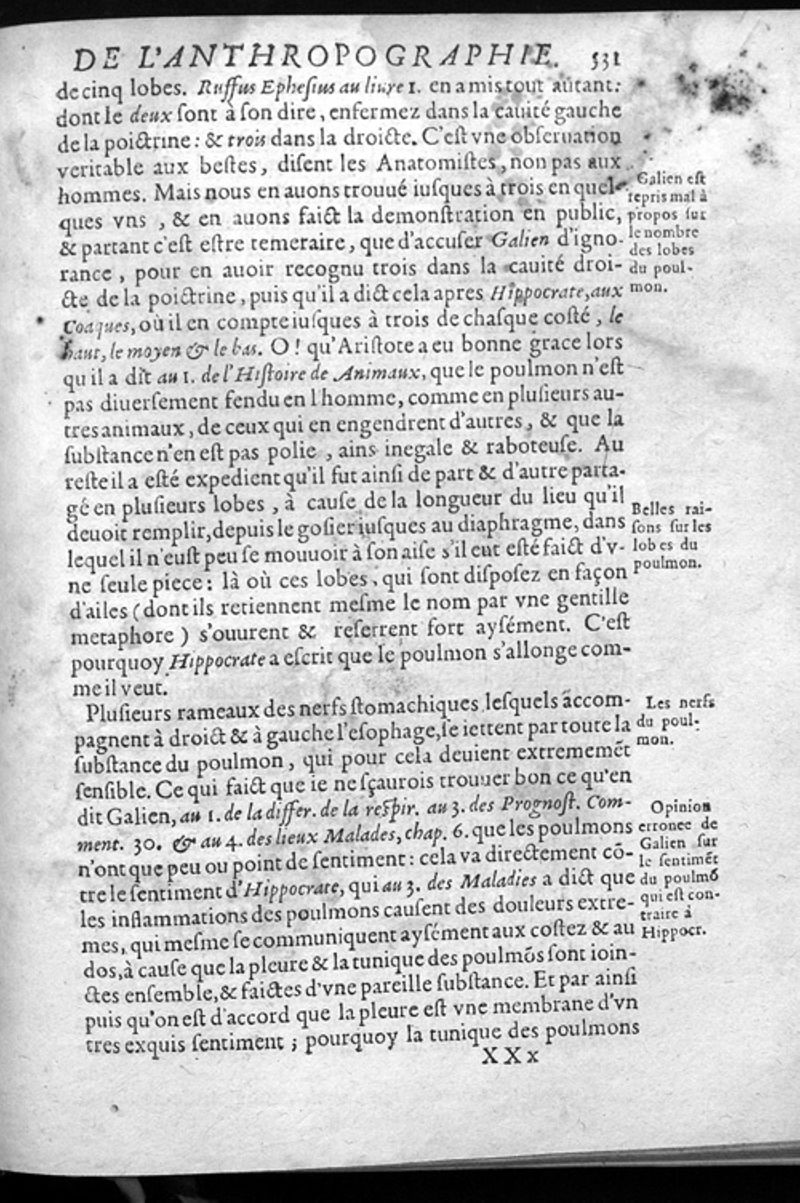 DE L'ANTHROPOGRAPHIE. 531
de cinq lobes. Ruffus Ephesius au liure 1. en a mis tout autant:
dont le deux ſont à ſon dire, enfermez dans la cauité gauche
de la poictrine: & trois dans la droicte. C'eſt vne obſeruation
veritable aux beſtes, diſent les Anatomiſtes, non pas aux
hommes. Mais nous en auons trouué iuſques à trois en quel-
ques vns, & en auons faict la demonſtration en public,
& partant c'eſt eſtre temeraire, que d'accuſer Galien d'igno-
rance, pour en auoir recognu trois dans la cauité droi-
cte de la poictrine, puis qu'il a dict cela apres Hippocrate, aux
Coaques, où il en compte iuſques à trois de chaſque coſté, le
haut, le moyen & le bas. O! qu'Ariſtote a eu bonne grace lors
qu il a dit au 1. de l'Hiſtoire de Animaux, que le poulmon n'eſt
pas diuerſement fendu en l'homme, comme en pluſieurs au-
tres animaux, de ceux qui en engendrent d'autres, & que la
ſubſtance n'en eſt pas polie, ains inegale & raboteuſe. Au
reſte il a eſté expedient qu'il fut ainſi de part & d'autre parta-
gé en pluſieurs lobes, à cauſe de la longueur du lieu qu'il
deuoit remplir, depuis le goſier iuſques au diaphragme, dans
lequel il n'euſt peu ſe mouuoir à ſon aiſe s'il eut eſté faict d'v-
ne ſeule piece: là où ces lobes, qui ſont diſpoſez en façon
d'ailes (dont ils retiennent meſme le nom par vne gentille
metaphore) s'ouurent & reſerrent fort ayſément. C'eſt
pourquoy Hippocrate a eſcrit que le poulmon s'allonge com-
me il veut.
Pluſieurs rameaux des nerfs ſtomachiques leſquels accom-
pagnent à droict & à gauche l'eſophage, ſe iettent par toute la
ſubſtance du poulmon, qui pour cela deuient extrememẽt
ſenſible. Ce qui faict que ie ne ſçaurois trouuer bon ce qu'en
dit Galien, au 1. de la differ. de la reſpir. au 3. des Prognoſt. Com-
ment. 30. & au 4. des lieux Malades, chap. 6. que les poulmons
n'ont que peu ou point de ſentiment: cela va directement cõ-
tre le ſentiment d'Hippocrate, qui au 3. des Maladies a dict que
les inflammations des poulmons cauſent des douleurs extre-
mes, qui meſme ſe communiquent ayſément aux coſtez & au
dos, à cauſe que la pleure & la tunique des poulmõs ſont ioin-
ctes enſemble, & faictes d'vne pareille ſubſtance. Et par ainſi
puis qu'on eſt d'accord que la pleure eſt vne membrane d'vn
tres exquis ſentiment; pourquoy la tunique des poulmons
XXx
Galien eſt
repris mal à
propos ſur
le nombre
des lobes
du poul-
mon.
Belles rai-
ſons ſur les
lobes du
poulmon.
Les nerfs
du poul-
mon.
Opinion
erronee de
Galien ſur
le ſentimẽt
du poulmõ
qui eſt con-
traire à
Hippocr.